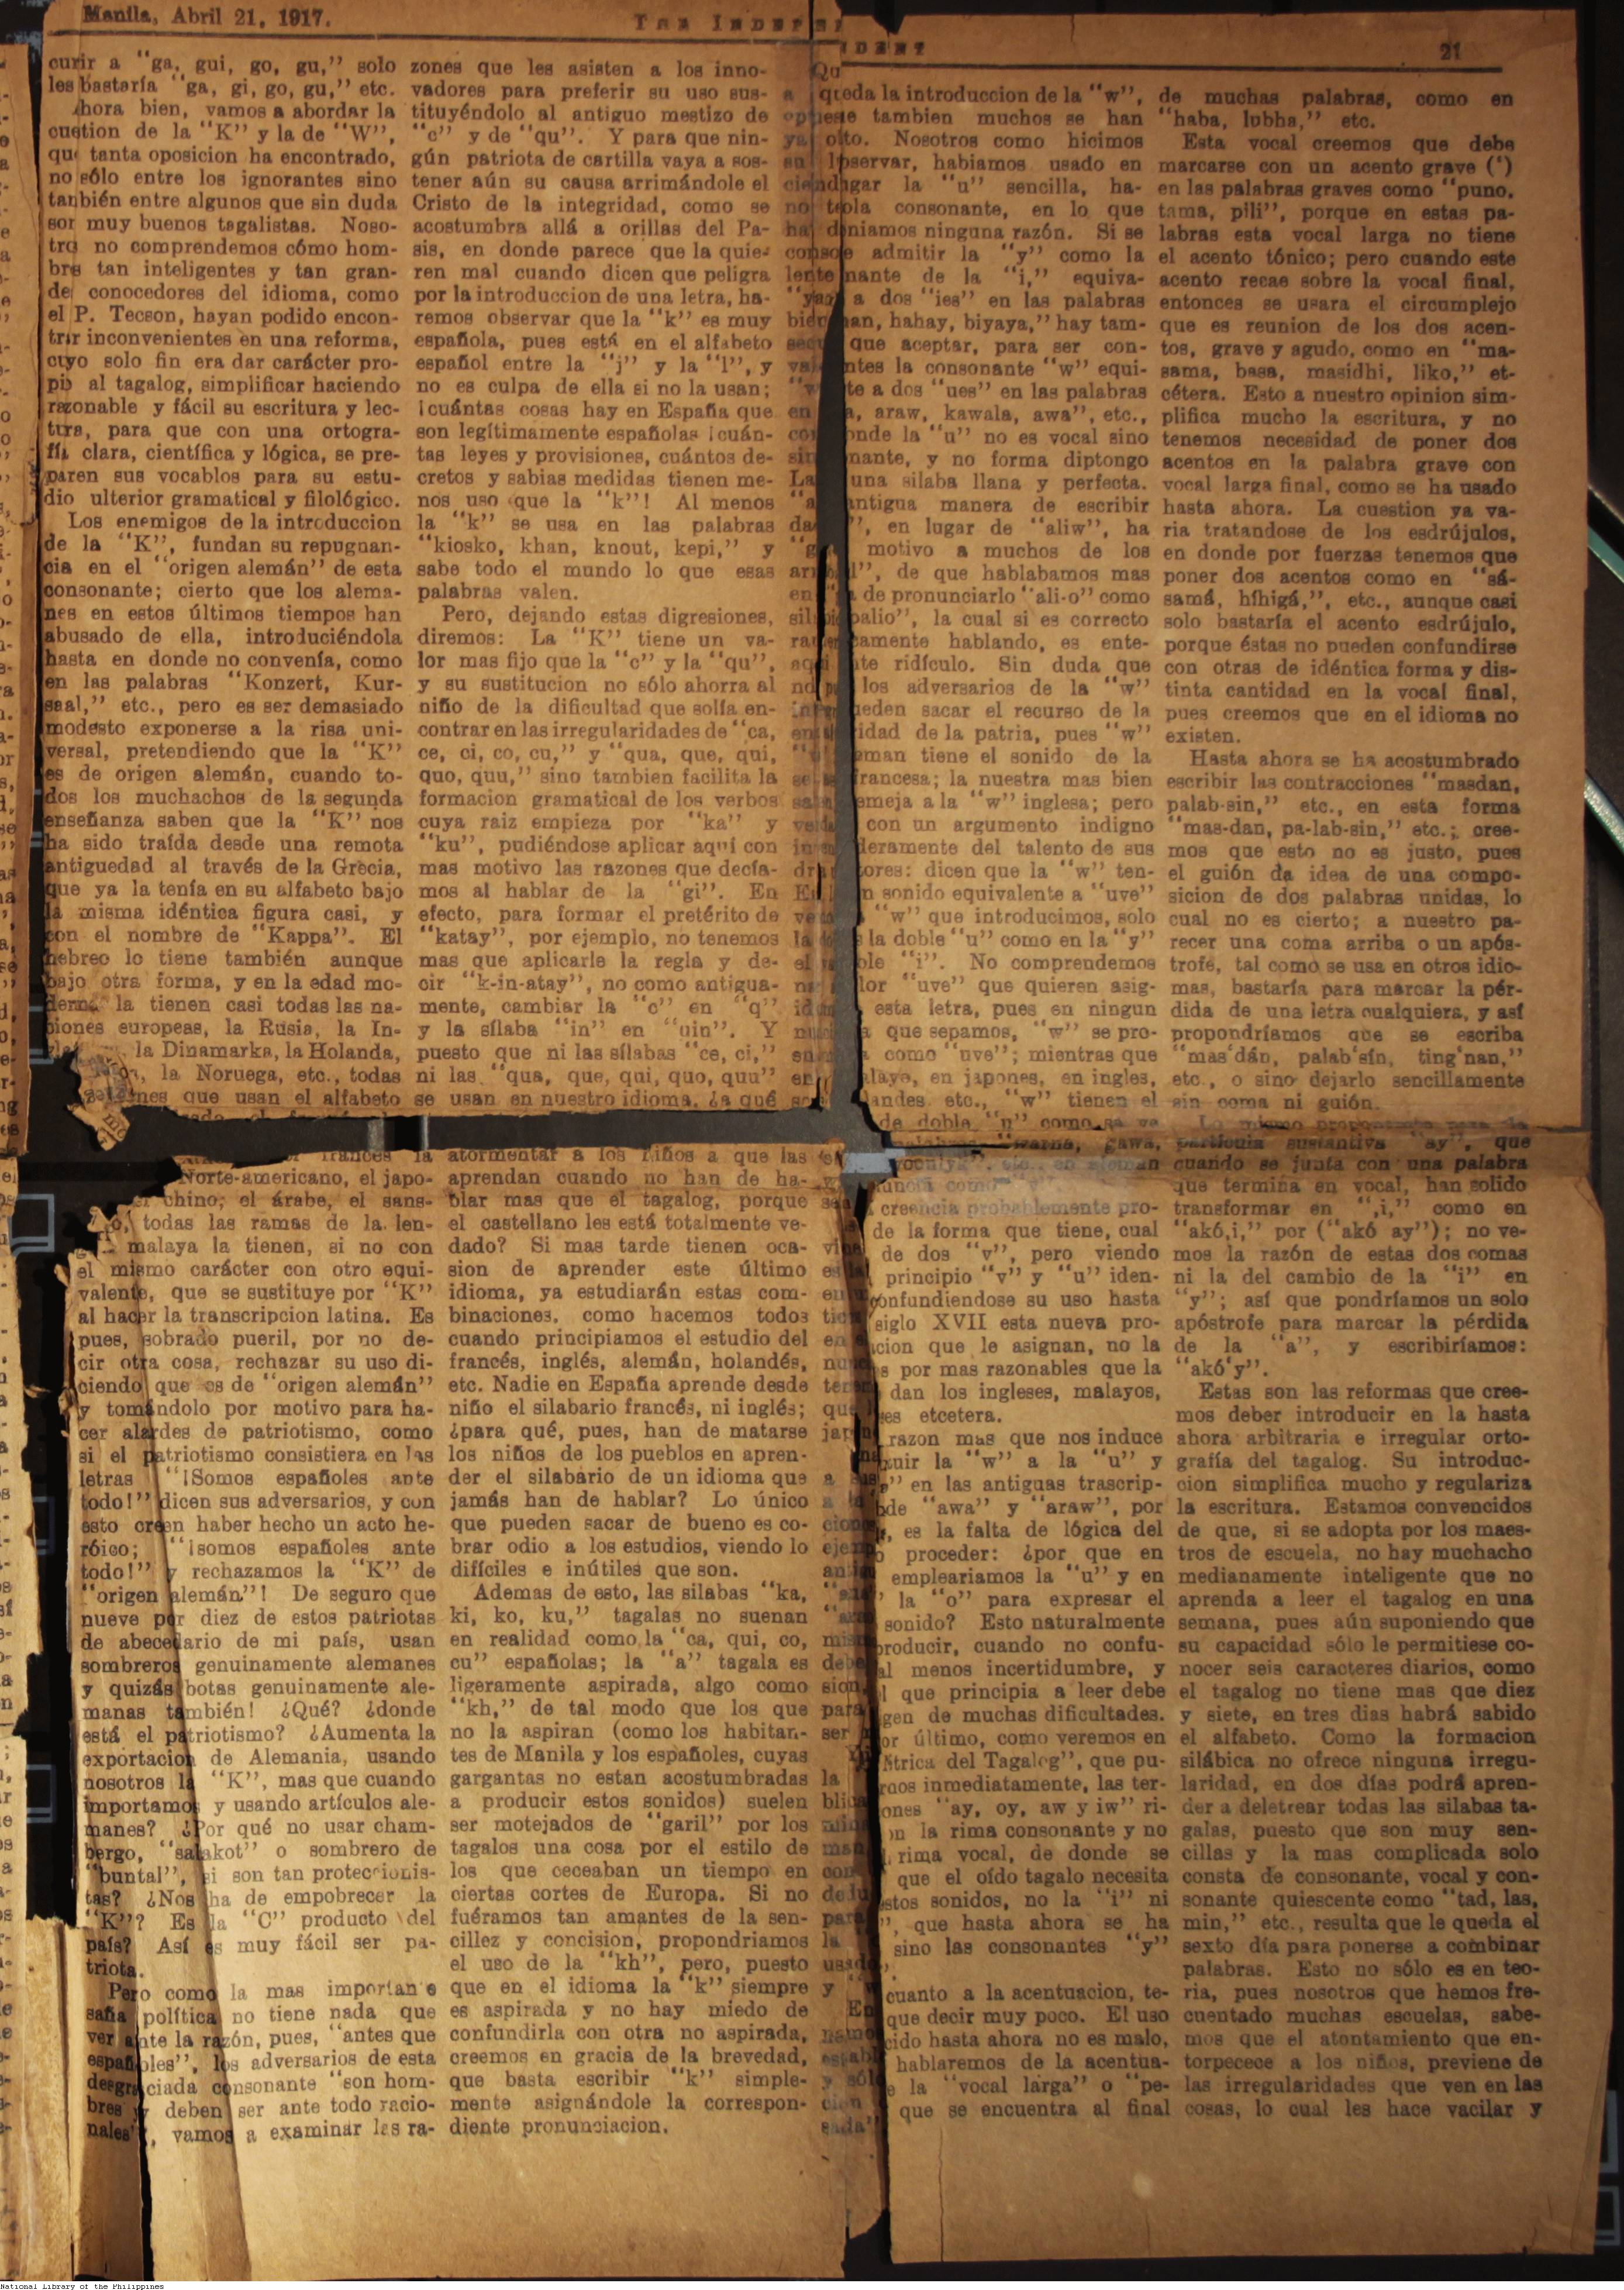 Manila, Abril 21, 1917.
THE INDEPENDENT
21
curir a "ga, gui, go, gu," solo
les bastaría "ga, gi, go, gu," etc.
Ahora bien, vamos a abordar la
cuestion de la "K" y la de "W",
que tanta oposicion ha encontrado,
no sólo entre los ignorantes sino
también entre algunos que sin duda
son muy buenos tagalistas. Noso-
tros no comprendemos cómo hom-
bres tan inteligentes y tan gran-
des conocedores del idioma, como
el P. Tecson, hayan podido encon-
trar inconvenientes en una reforma,
cuyo solo fin era dar carácter pro-
pio al tagalog, simplificar haciendo
razonable y fácil su escritura y lec-
tura, para que con una ortogra-
fía clara, científica y lógica, se pre-
paren sus vocablos para su estu-
dio ulterior gramatical y filológico.
Los enemigos de la introduccion
de la "K", fundan su repugnan-
cia en el "origen alemán" de esta
consonante; cierto que los alema-
nes en estos últimos tiempos han
abusado de ella, introduciéndola
hasta en donde no convenía, como
en las palabras "Konzert, Kur-
saal," etc., pero es ser demasiado
modesto exponerse a la risa uni-
versal, pretendiendo que la "K"
es de origen alemán, cuando to-
dos los muchachos de la segunda
enseñanza saben que la "K" nos
ha sido traída desde una remota
antiguedad al través de la Grecia,
que ya la tenía en su alfabeto bajo
la misma idéntica figura casi, y
con el nombre de "Kappa". El
hebreo lo tiene también aunque
bajo otra forma, y en la edad mo-
derna la tienen casi todas las na-
ciones europeas, la Rusia, la In-
la Dinamarka, la Holanda,
la Noruega, etc., todas
que usan el alfabeto
francés la
Norte-americano, el japo-
chino; el árabe, el sans-
todas las ramas de la len-
malaya la tienen, si no con
el mismo carácter con otro equi-
valente, que se sustituye por "K"
al hacer la transcripcion latina. Es
pues, sobrado pueril, por no de-
cir otra cosa, rechazar su uso di-
ciendo que es de "origen alemán"
y tomándolo por motivo para ha-
cer alardes de patriotismo, como
si el patriotismo consistiera en las
letras "¡Somos españoles ante
todo!" dicen sus adversarios, y con
esto creen haber hecho un acto he-
róico; "¡somos españoles ante
todo!" y rechazamos la "K" de
"origen alemán"! De seguro que
nueve por diez de estos patriotas
de abecedario de mi país, usan
sombreros genuinamente alemanes
y quizás botas genuinamente ale-
manas también! ¿Qué? ¿donde
está el patriotismo? ¿Aumenta la
exportacion de Alemania, usando
nosotros la "K", mas que cuando
importamos y usando artículos ale-
manes? ¿Por qué no usar cham-
bergo, "salakot" o sombrero de
"buntal", si son tan proteccionis-
tas? ¿Nos ha de empobrecer la
"K"? Es la "C" producto del
país? Así es muy fácil ser pa-
triota.
Pero como la mas importan e
saña política no tiene nada que
ver ante la razón, pues, "antes que
españoles", los adversarios de esta
desgraciada consonante "son hom-
bres y deben ser ante todo racio-
nales", vamos a examinar las ra-
zones que les asisten a los inno-
vadores para preferir su uso sus-
tituyéndolo al antiguo mestizo de
"c" y de "qu". Y para que nin-
gún patriota de cartilla vaya a sos-
tener aún su causa arrimándole el
Cristo de la integridad, como se
acostumbra allá a orillas del Pa-
sis, en donde parece que la quie-
ren mal cuando dicen que peligra
por la introduccion de una letra, ha-
remos observar que la "k" es muy
española, pues está en el alfabeto
español entre la "j" y la "l", y
no es culpa de ella si no la usan;
¡cuántas cosas hay en España que
son legítimamente españolas ¡cuán-
tas leyes y provisiones, cuántos de-
cretos y sabias medidas tienen me-
nos uso que la "k"! Al menos
la "k" se usa en las palabras
"kiosko, khan, knout, kepi," y
sabe todo el mundo lo que esas
palabras valen.
Pero, dejando estas digresiones,
diremos: La "K" tiene un va-
lor mas fijo que la "c" y la "qu",
y su sustitucion no sólo ahorra al
niño de la dificultad que solía en-
contrar en las irregularidades de "ca,
ce, ci, co, cu," y "qua, que, qui,
quo, quu," sino tambien facilita la
formacion gramatical de los verbos
cuya raiz empieza por "ka" y
"ku", pudiéndose aplicar aquí con
mas motivo las razones que decía-
mos al hablar de la "gi". En
efecto, para formar el pretérito de
"katay", por ejemplo, no tenemos
mas que aplicarle la regla y de-
cir "k-in-atay", no como antigua-
mente, cambiar la "c" en "q"
y la sílaba "in" en "uin". Y
puesto que ni las sílabas "ce, ci,"
ni las "qua, que, qui, quo, quu"
se usan en nuestro idioma, ¿a qué
atormentar a los niños a que las
aprendan cuando no han de ha-
blar mas que el tagalog, porque
el castellano les está totalmente ve-
dado? Si mas tarde tienen oca-
sion de aprender este último
idioma, ya estudiarán estas com-
binaciones, como hacemos todos
cuando principiamos el estudio del
francés, inglés, alemán, holandés,
etc. Nadie en España aprende desde
niño el silabario francés, ni inglés;
¿para qué, pues, han de matarse
los niños de los pueblos en apren-
der el silabario de un idioma que
jamás han de hablar? Lo único
que pueden sacar de bueno es co-
brar odio a los estudios, viendo lo
difíciles e inútiles que son.
Ademas de esto, las silabas "ka,
ki, ko, ku," tagalas no suenan
en realidad como la "ca, qui, co,
cu" españolas; la "a" tagala es
ligeramente aspirada, algo como
"kh," de tal modo que los que
no la aspiran (como los habitan-
tes de Manila y los españoles, cuyas
gargantas no estan acostumbradas
a producir estos sonidos) suelen
ser motejados de "garil" por los
tagalos una cosa por el estilo de
los que ceceaban un tiempo en
ciertas cortes de Europa. Si no
fuéramos tan amantes de la sen-
cillez y concision, propondriamos
el uso de la "kh", pero, puesto
que en el idioma la "k" siempre
es aspirada y no hay miedo de
confundirla con otra no aspirada,
creemos en gracia de la brevedad,
que basta escribir "k" simple-
mente asignándole la correspon-
diente pronunciacion.
Queda la introduccion de la "w",
a que tambien muchos se han
opuesto. Nosotros como hicimos
observar, habiamos usado en
su lugar la "u" sencilla, ha-
ciendola consonante, en lo que
no teniamos ninguna razón. Si se
ha de admitir la "y" como la
consonante de la "i," equiva-
lente a dos "ies" en las palabras
"yaman, hahay, biyaya," hay tam-
bien que aceptar, para ser con-
secuentes la consonante "w" equi-
valente a dos "ues" en las palabras
"wala, araw, kawala, awa", etc.,
en donde la "u" no es vocal sino
consonante, y no forma diptongo
sino una silaba llana y perfecta.
La antigua manera de escribir
", en lugar de "aliw", ha
dado motivo a muchos de los
"garil", de que hablabamos mas
arriba de pronunciarlo "ali-o" como
en "palio", la cual si es correcto
silabicamente hablando, es ente-
ramente ridículo. Sin duda que
aqui los adversarios de la "w"
no pueden sacar el recurso de la
integridad de la patria, pues "w"
en aleman tiene el sonido de la
francesa; la nuestra mas bien
se asemeja a la "w" inglesa; pero
salen con un argumento indigno
verdaderamente del talento de sus
inventores: dicen que la "w" ten-
drá un sonido equivalente a "uve"
En la "w" que introducimos, solo
vemos la doble "u" como en la "y"
la doble "i". No comprendemos
el valor "uve" que quieren asig-
nar a esta letra, pues en ningun
idioma que sepamos, "w" se pro-
nuncia como "uve"; mientras que
en malayo, en japones, en ingles,
en holandes etc., "w" tienen el
de doble "u" como se ve
"warna, gawa,
en aleman
como "v"
creencia probablemente pro-
viene de la forma que tiene, cual
es la de dos "v", pero viendo
en principio "v" y "u" iden-
ticos confundiendose su uso hasta
en el siglo XVII esta nueva pro-
nunciacion que le asignan, no la
tenemos por mas razonables que la
que le dan los ingleses, malayos,
japoneses etcetera.
razon mas que nos induce
a sustituir la "w" a la "u" y
a la "o" en las antiguas trascrip-
ciones de "awa" y "araw", por
ejemplo, es la falta de lógica del
antiguo proceder: ¿por que en
"aua" empleariamos la "u" y en
"arao" la "o" para expresar el
mismo sonido? Esto naturalmente
debe producir, cuando no confu-
sion, al menos incertidumbre, y
para el que principia a leer debe
ser origen de muchas dificultades.
Y por último, como veremos en
la "Métrica del Tagalog", que pu-
blicaremos inmediatamente, las ter-
minaciones "ay, oy, aw y iw" ri-
man con la rima consonante y no
con la rima vocal, de donde se
deduce que el oído tagalo necesita
para estos sonidos, no la "i" ni
la ", que hasta ahora se ha
usado, sino las consonantes "y"
y "w".
En cuanto a la acentuacion, te-
nemos que decir muy poco. El uso
establecido hasta ahora no es malo,
y sólo hablaremos de la acentua-
cion de la "vocal larga" o "pe-
sada" que se encuentra al final
de muchas palabras, como en
"haba, lubha," etc.
Esta vocal creemos que debe
marcarse con un acento grave (`)
en las palabras graves como "puno,
tama, pili", porque en estas pa-
labras esta vocal larga no tiene
el acento tónico; pero cuando este
acento recae sobre la vocal final,
entonces se usara el circumplejo
que es reunion de los dos acen-
tos, grave y agudo, como en "ma-
sama, basa, masidhi, liko," et-
cétera. Esto a nuestro opinion sim-
plifica mucho la escritura, y no
tenemos necesidad de poner dos
acentos en la palabra grave con
vocal larga final, como se ha usado
hasta ahora. La cuestion ya va-
ria tratandose de los esdrújulos,
en donde por fuerzas tenemos que
poner dos acentos como en "sá-
samá, híhigá,", etc., aunque casi
solo bastaría el acento esdrújulo,
porque éstas no pueden confundirse
con otras de idéntica forma y dis-
tinta cantidad en la vocal final,
pues creemos que en el idioma no
existen.
Hasta ahora se ha acostumbrado
escribir las contracciones "masdan,
palab-sin," etc., en esta forma
"mas-dan, pa-lab-sin," etc.; cree-
mos que esto no es justo, pues
el guión da idea de una compo-
sicion de dos palabras unidas, lo
cual no es cierto; a nuestro pa-
recer una coma arriba o un após-
trofe, tal como se usa en otros idio-
mas, bastaría para marcar la pér-
dida de una letra cualquiera, y así
propondríamos que se escriba
"mas‘dán, palab‘sín, ting‘nan,"
etc., o sino dejarlo sencillamente
sin coma ni guión.
Lo mismo propon para la
particula sustantiva "ay", que
cuando se junta con una palabra
que termina en vocal, han solido
transformar en ",i," como en
"akó,i," por ("akó ay"); no ve-
mos la razón de estas dos comas
ni la del cambio de la "i" en
"y"; así que pondríamos un solo
apóstrofe para marcar la pérdida
de la "a", y escribiríamos:
"akó‘y".
Estas son las reformas que cree-
mos deber introducir en la hasta
ahora arbitraria e irregular orto-
grafía del tagalog. Su introduc-
cion simplifica mucho y regulariza
la escritura. Estamos convencidos
de que, si se adopta por los maes-
tros de escuela, no hay muchacho
medianamente inteligente que no
aprenda a leer el tagalog en una
semana, pues aún suponiendo que
su capacidad sólo le permitiese co-
nocer seis caracteres diarios, como
el tagalog no tiene mas que diez
y siete, en tres dias habrá sabido
el alfabeto. Como la formacion
silábica no ofrece ninguna irregu-
laridad, en dos días podrá apren-
der a deletrear todas las silabas ta-
galas, puesto que son muy sen-
cillas y la mas complicada solo
consta de consonante, vocal y con-
sonante quiescente como "tad, las,
min," etc., resulta que le queda el
sexto día para ponerse a combinar
palabras. Esto no sólo es en teo-
ria, pues nosotros que hemos fre-
cuentado muchas escuelas, sabe-
mos que el atontamiento que en-
torpecece a los niños, previene de
las irregularidades que ven en las
cosas, lo cual les hace vacilar y
National Library of the Philippines